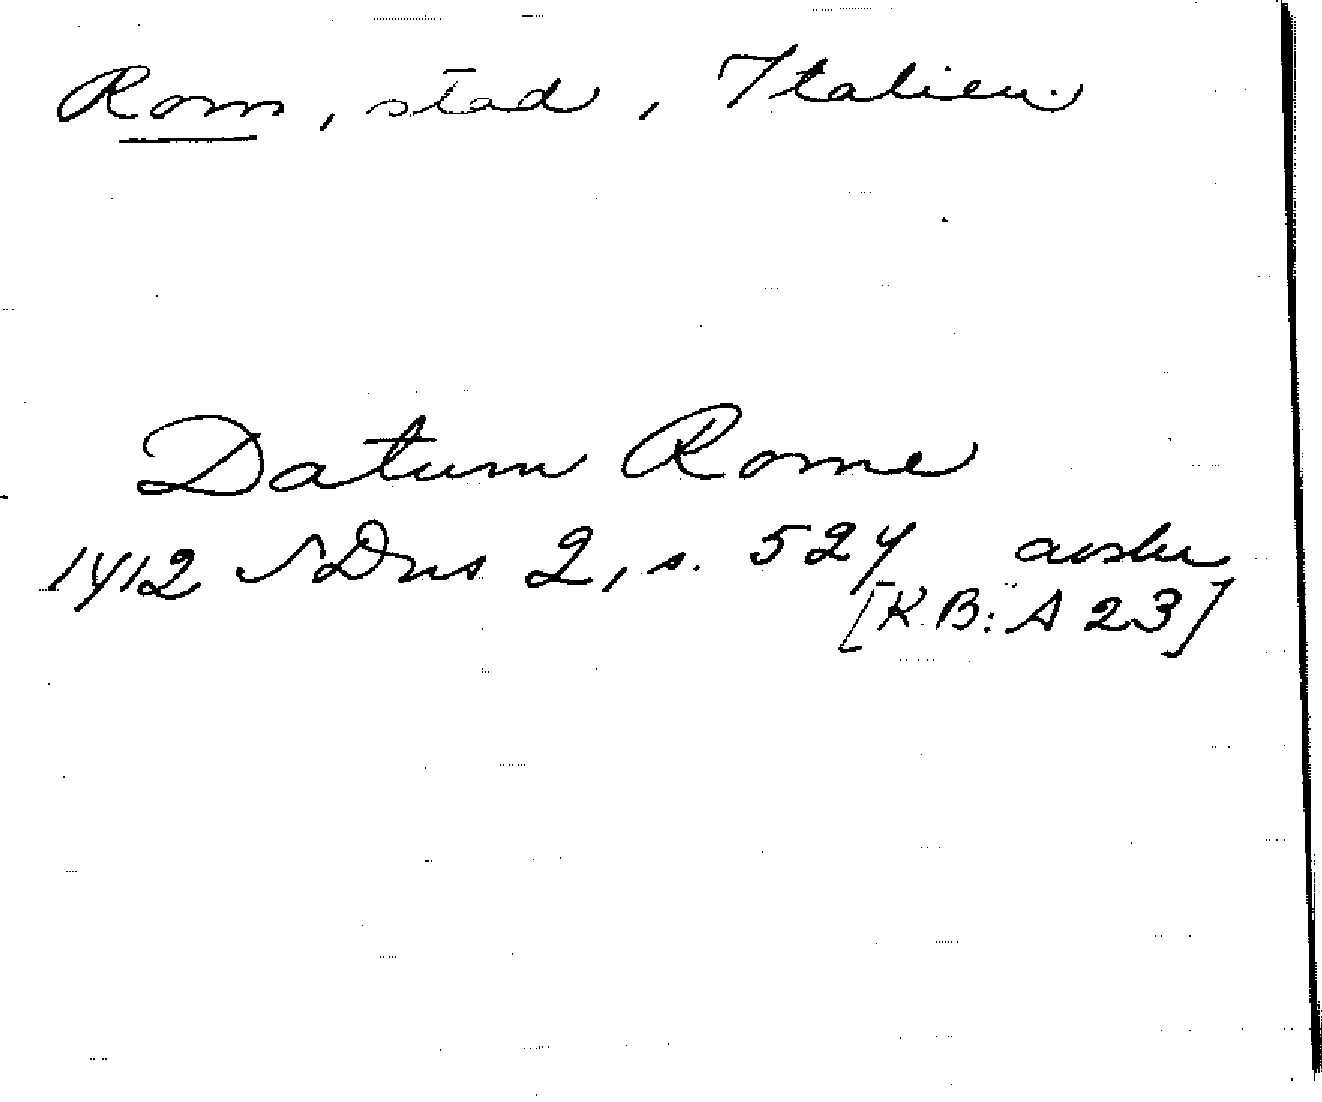 Rom, stad, Italien.
Datum Rome
1412 SDns 2, s. 524 avskr
[KB: A 23]